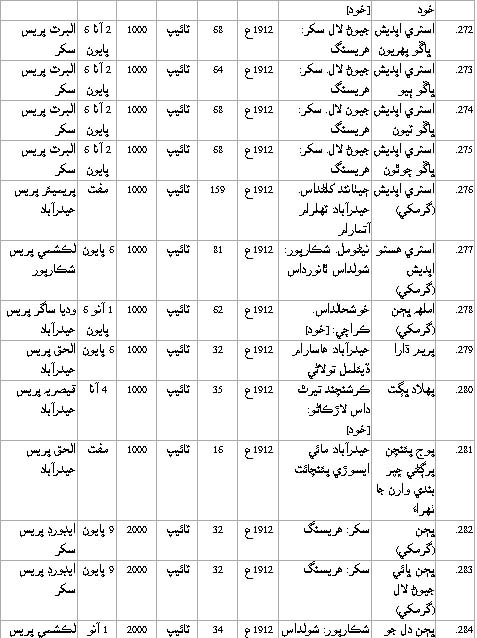 خود [خود]
272. استري اپديش جيوڻ لال سکر: 1912ع 68 ٽائيپ 1000 2 آنا 6 البرٽ پريس
ڀاڱو پهريون هريسنگ پايون سکر
273. استري اپديش جيوڻ لال. سکر: 1912ع 64 ٽائيپ 1000 2 آنا 6 البرٽ پريس
ڀاڱو ٻيو هريسنگ پايون سکر
274. استري اپديش جيون لال. سکر: 1912ع 68 ٽائيپ 1000 2 آنا 6 البرٽ پريس
ڀاڱو ٽيون هريسنگ پايون سکر
275. استري اپديش جيوڻ لال. سکر: 1912ع 68 ٽائيپ 1000 2 آنا 6 البرٽ پريس
ڀاڱو چوٿون هريسنگ پايون سکر
276. استري اپديش 1912ع 159 ٽائيپ 1000 مفت پريميئر پريس
(گرمکي) حيدرآباد: ٽهلرام حيدرآباد
آتمارام
277. استري هستو شڪارپور: 1912ع 81 ٽائيپ 1000 6 پايون لڪشمي پريس
اپديش شولداس ٿانورداس شڪارپور
(گرمکي)
278. املهہ ڀڄن خوشحالداس. 1912ع 62 ٽائيپ 1000 1 آنو 6 وديا ساگر پريس
(گرمکي) ڪراچي: [خود] پايون حيدرآباد
279. پريم ڌارا حيدرآباد: هاسارام 1912ع 32 ٽائيپ 1000 6 پايون الحق پريس
ڏيئلمل تولاڻي حيدرآباد
280. پهلاد ڀڳت ڪرشنچند تيرٿ 1912ع 35 ٽائيپ 1000 4 آنا قيصريہ پريس
داس لاڙڪاڻو: حيدرآباد
[خود]
281. پوڄ پئنچن حيدرآباد مائي 1912ع 16 ٽائيپ 1000 مفت الحق پريس
پرڳڻي ڇپر ايسوڙي پئنچائت حيدرآباد
بندي وارن جا
ٺهراءَ
282. ڀڄن سکر: هريسنگ 1912ع 32 ٽائيپ 2000 9 پايون ايڊورڊ پريس
(گرمکي) سکر
283. ڀڄن ڀائي سکر: هريسنگ 1912ع 32 ٽائيپ 2000 9 پايون ايڊورڊ پريس
جيوڻ لال سکر
(گرمکي)
284. ڀڄن دل جو شڪارپور: شولداس 1912ع 34 ٽائيپ 2000 1 آنو لڪشمي پريس